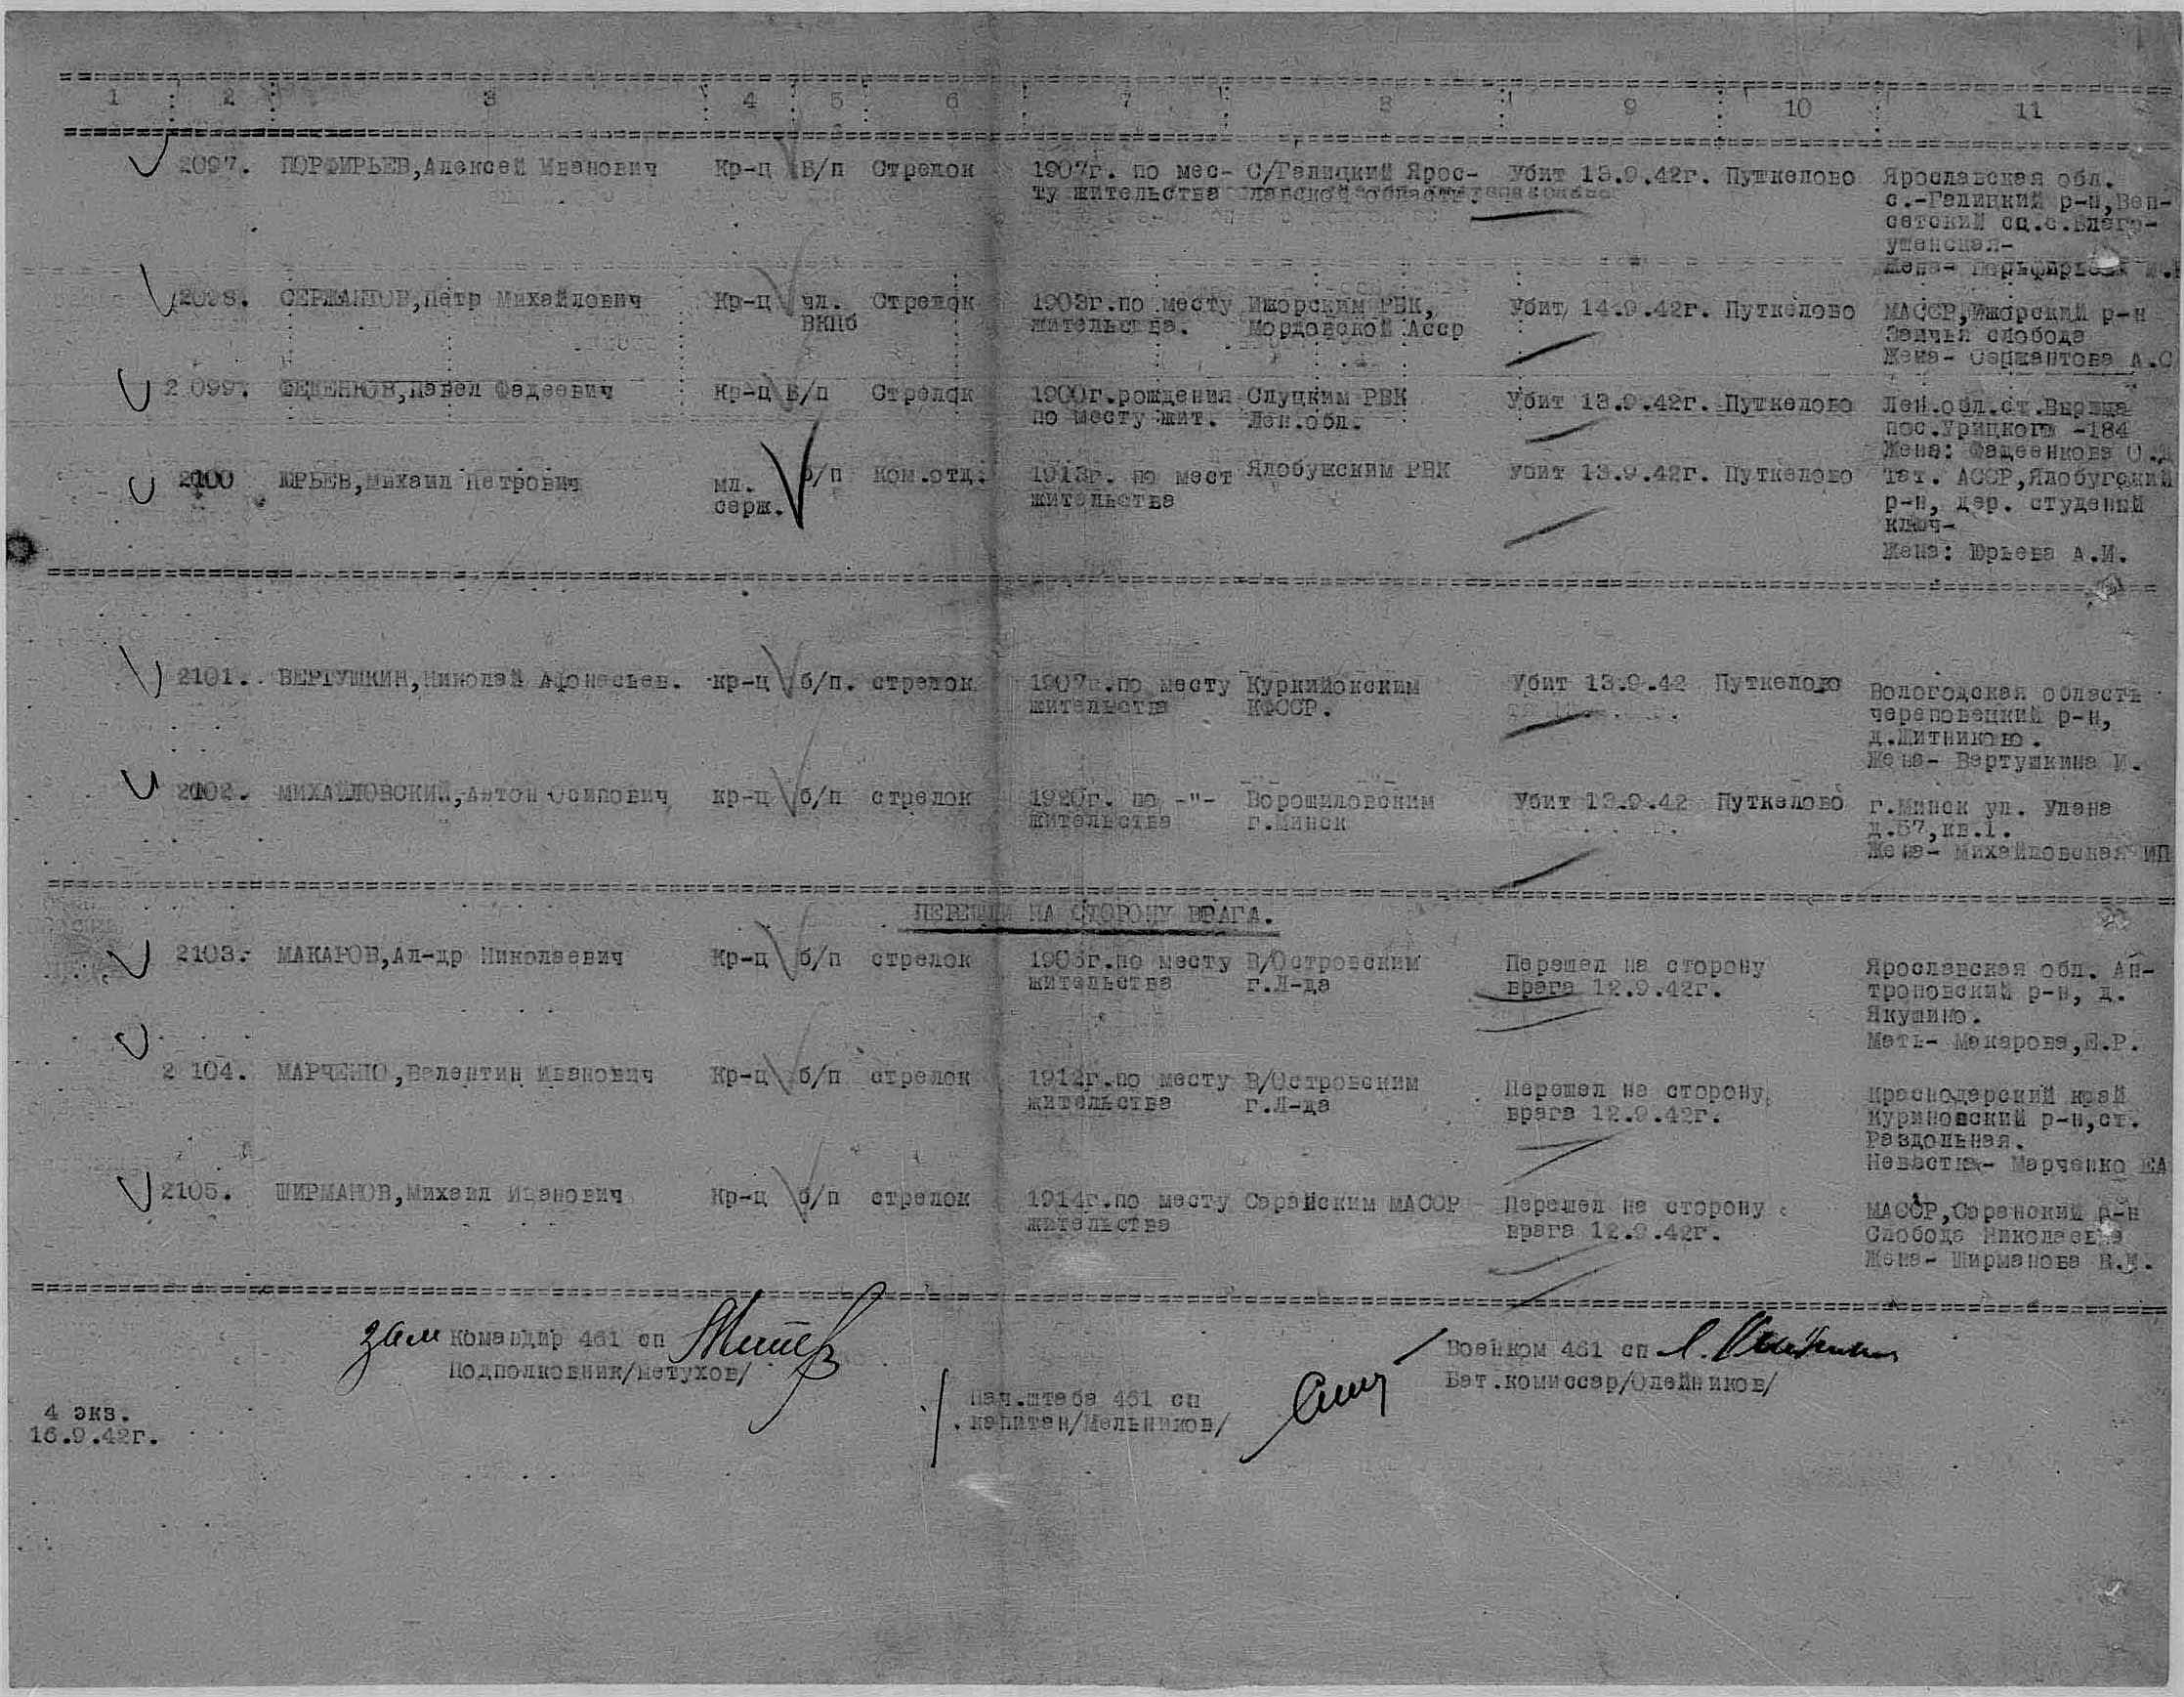 1 2 3 4 5 6 7 8 9 10 11
2097. ПОРФИРЬЕВ,Алексей Иванович Кр-ц Б/п Стрелок 1907г. по мес- С/Галицкий Ярос- Убит 13.9.42г. Путкелово Ярославская обл.
ту жительства лавской области. с.-Галицкий р-н,Вон-
сетский сц.с.Благо-
ущенская-
Жена- Порьфирьева
2098. СЕРЖАНТОВ,Петр Михайлович Кр-ц чл. Стрелок 1903г.по месту Ижорским РВК, Убит 14.9.42г. Путкелово МАССР,Ижорский р-н
ВКПб жительства. Мордовской Асср Заичья слобода
Жена- Сержантова А.С
2 099. ФЕДЕНКОВ,Павел Фадеевич Кр-ц Б/п Стрелок 1900г.рождения Слуцким РВК Убит 13.9.42г. Путкелово Лен.обл.ст.Вырица
по месту жит. Лен.обл. пос.Урицкого -184
Жена: Фадеенкова О.
2100 ЮРЬЕВ,Михаил Петрович мл. б/п ком.отд. 1913г. по мест Ялобужским РВК Убит 13.9.42г. Путкелово Тат. АССР,Ялобугский
серж. жительства р-н, дер. студеный
ключ-
Жена: Юрьева А.И.
2101. ВЕРТУШКИН,Николай Афонасьев. кр-ц б/п. стрелок 1907г.по месту Куркийокским Убит 13.9.42 Путкелово Вологодская область
жительства КФССР. череповецкий р-н,
д.Шитниково.
Жена- Вертушкина И.
2102. МИХАЙЛОВСКИЙ,Антон Осипович кр-ц б/п стрелок 1920г. по -"- Ворошиловским Убит 13.9.42 Путкелово г.Минск ул. Улана
жительства г.Минск д.57,кв.1.
Жена- Михайловская ИП
ПЕРЕШЛИ НА СТОРОНУ ВРАГА.
2103. МАКАРОВ,Ал-др Николаевич Кр-ц б/п стрелок 1906г.по месту В/Островским Перешел на сторону Ярославская обл. Ан-
жительства г.Л-да врага 12.9.42г. троповский р-н, д.
Якушино.
Мать- Макарова,Е.Р.
2 104. МАРЧЕНКО,Валентин Иванович Кр-ц б/п стрелок 1912г.по месту В/Островским Перешел на сторону Краснодарский край
жительства г.Л-да врага 12.9.42г. Куриновский р-н,ст.
Раздольная.
Невестка- Марченко ЕА
2105. ШИРМАНОВ,Михаил Иванович Кр-ц б/п стрелок 1914г.по месту Саранским МАССР Перешел на сторону МАССР,Саранский р-н
жительства врага 12.9.42г. Слобода Николаевна
Жена- Ширманова
зам командир 461 сп Военком 461 сп
Подполковник/Метухов/ Бат.комиссар/Олейников/
Нач.штаба 461 сп
капитан/Мельников/
4 экз.
16.9.42г.